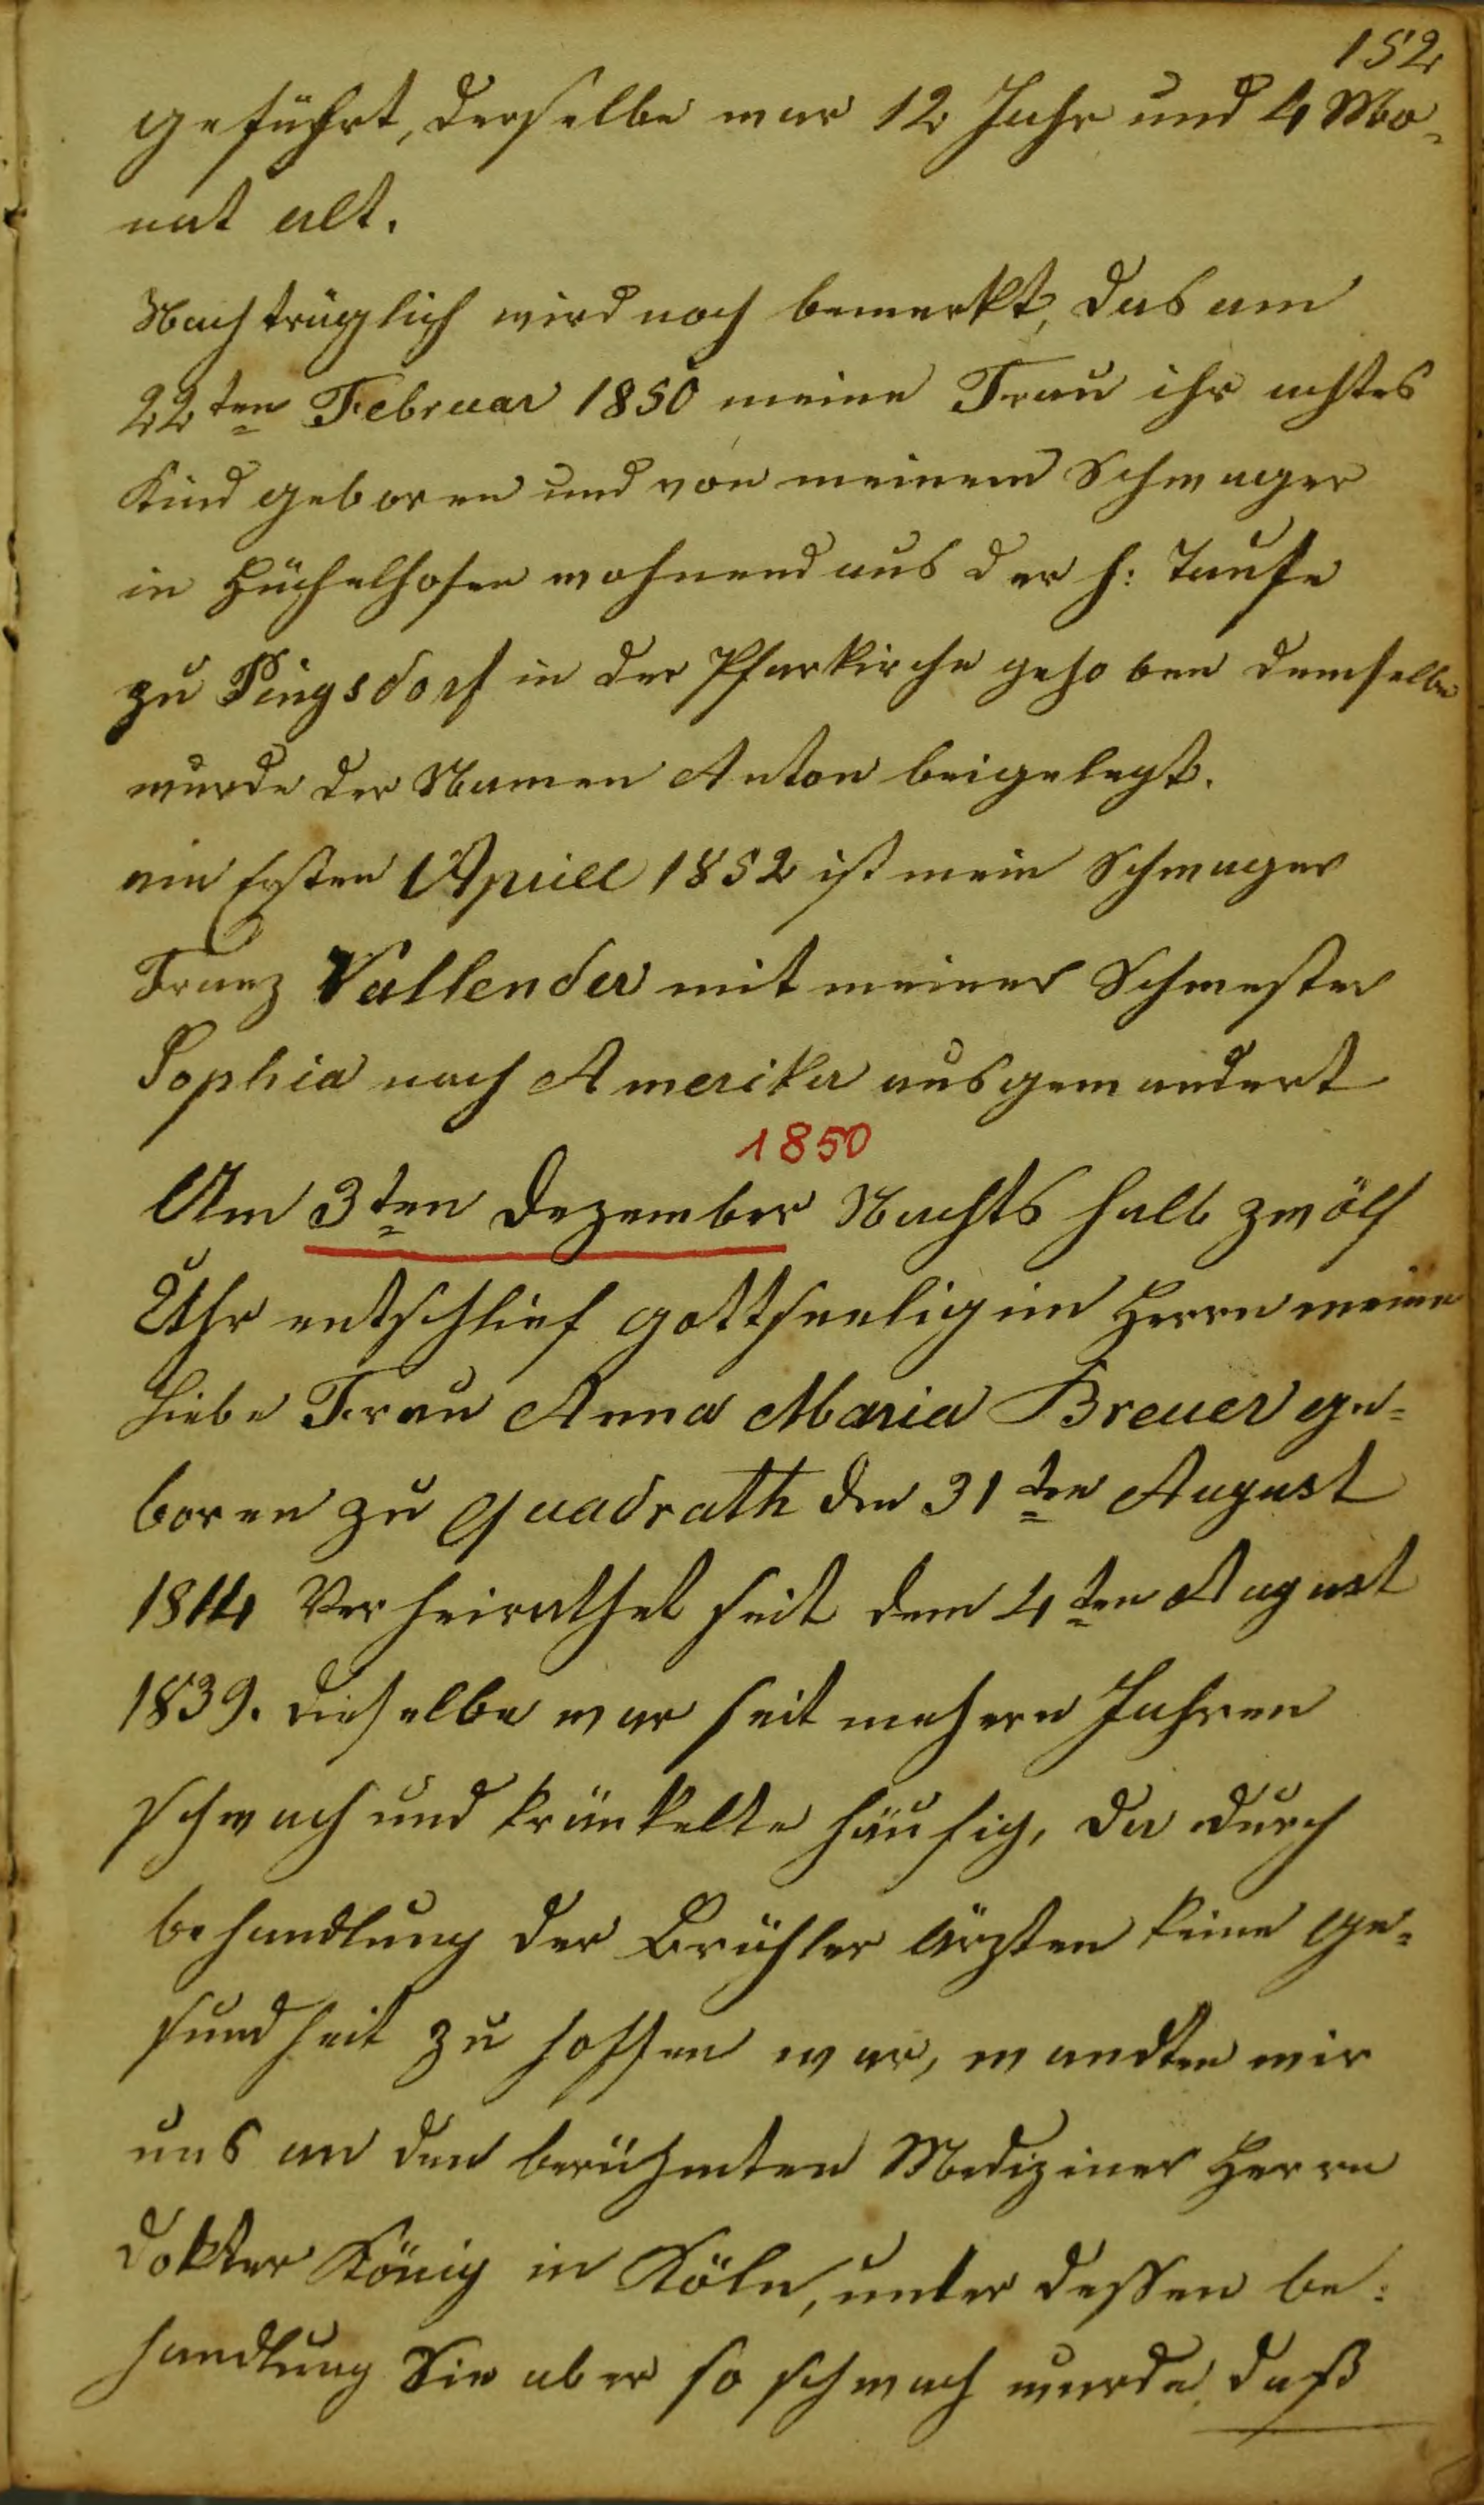 152
geführt, derselbe war 12 Jahr und 4 Mo-
nat alt.
Nachträglich wird noch bemerkt, das am
22ten Februar 1850 meine Frau ihr achtes
Kind geboren und von meinem Schwager
in Hüchelhofen wohnend aus der h: Taufe
zu Pingsdorf in der Pfarkirche gehoben demselbe
wurde der Namen Anton beigelegt.
am Ersten Aprill 1852 ist mein Schwager
Franz Vallender mit meiner Schwester
Sophia nach Amerika ausgewandert
1850
Am 3ten Dezember Nachts halb zwölf
Uhr entschlief gottseelig im Herrn meine
liebe Frau Anna Maria Breuer ge=
boren zu Quadrath den 31ten August
1814 Verheirathet seit dem 4ten August
1839. dieselbe war seit mehern Jahren
schwach und kränkelte häufig, da durch
behandlung der Brühler Ärzten keine Ge=
sundheit zu hoffen war, wandten wir
uns an den berühmten Mediziner Herrn
Dokter König in Köln, unter dessen be:
handlung Sie aber so schwach wurde, daß